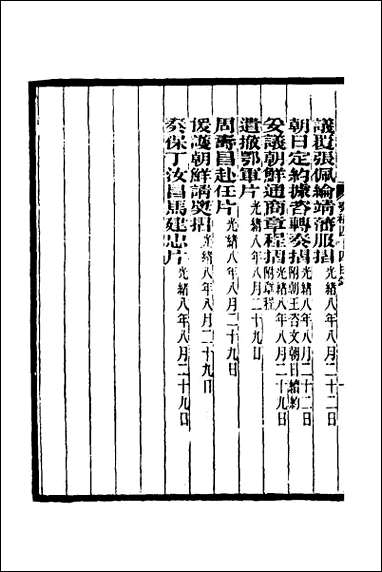 奏稿四十四目錄 一
議覆張佩綸靖藩服摺 光緒八年八月二十二日
朝日定約據咨轉奏摺 光緒八年八月二十二日 附朝王咨文朝日續約
妥議朝鮮通商章程摺 光緒八年八月二十九日 附章程
遣撤鄂軍片 光緒八年八月二十九日
周壽昌赴任片 光緒八年八月二十九日
援護朝鮮請獎摺 光緒八年八月二十九日
奏保丁汝昌馬建忠片 光緒八年八月二十九日